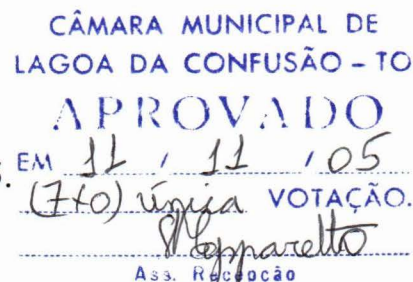 CÂMARA MUNICIPAL DE
LAGOA DA CONFUSÃO – TO
APROVADO
EM 11 / 11 / 05
(7x0) única VOTAÇÃO.
Ass. Recepcão